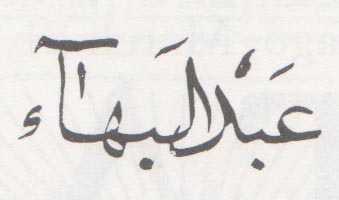 عَبْدالبَهآء